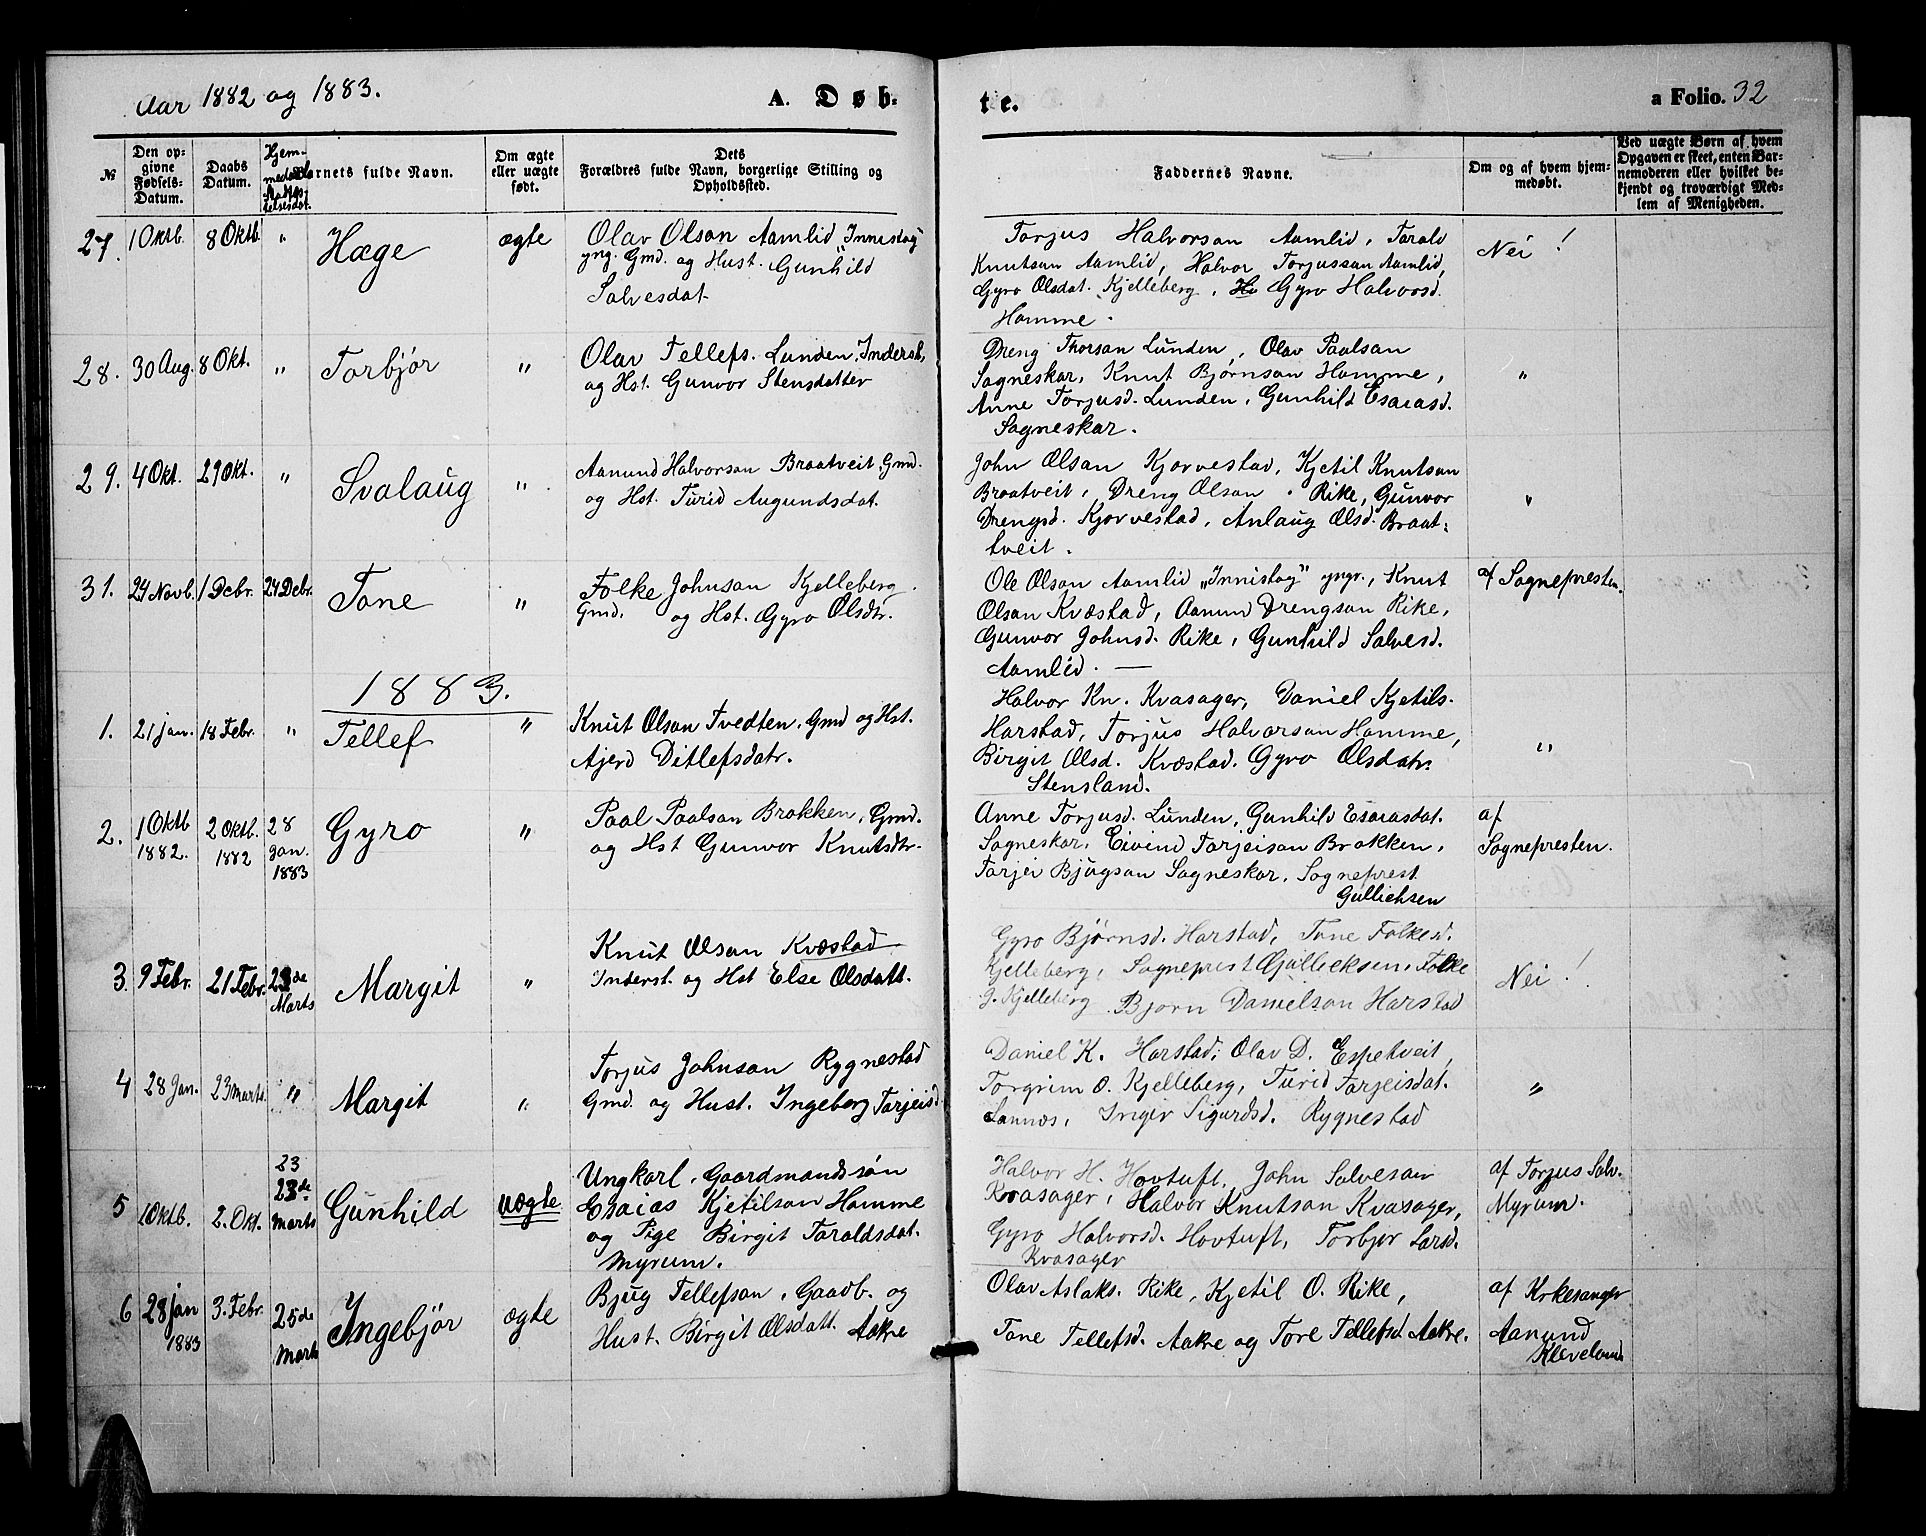 Aar 1882 og 1883.
A. Døb-
te.
a Folio. 32
№
Den op-
givne
Fødsels-
Datum.
Daabs
Datum.
Hjem-
Barnets fulde Navn.
Om ægte
eller uægte
født.
Dets
Forældres fulde Navn, borgerlige Stilling og
Opholdssted.
Faddernes Navne.
Om og af hvem hjem-
medøbt.
Ved uægte Børn af hvem
Opgaven er skeet, enten Bar-
nemoderen eller hvilket be-
kjendt og troværdigt Med-
lem af Menigheden.
27. 1 Oktb. 8 Oktb. " Hæge ægte
Olav Olsan Aamlid "Innistog"
yng. Gmd. og Hust. Gunhild
Salvesdat.
Torjus Halvorsan Aamlid, Tarald
Knutsan Aamlid, Halvor Torjussan Aamlid,
Gyro Olsdat. Kjelleberg, Gyro Halvorsd.
Homme.
Nei!
28. 30 Aug. 8 Okt. " Torbjør "
Olav Tellefs. Lunden, Inderst,
og Hst. Gunvor Stensdatter
Dreng Thorsan Lunden, Olav Paalsan
Sagneskar, Knut Bjørnsan Homme,
Anne Torjusd. Lunden, Gunhild Esaiasd.
Sagneskar.
"
29. 4 Okt. 29 Okt. " Svalaug "
Aanund Halvorsan Braatveit, Gmd.
og Hst. Turid Augundsdat.
John Olsan Kjorvestad, Kjetil Knutsan
Braatveit, Dreng Olsan Rike, Gunvor
Drengsd. Kjorvestad, Anlaug Olsd. Braat-
tveit.
"
31. 24 Novb. 1 Debr. 24 Debr. Tone "
Folke Johnsan Kjelleberg
Gmd. og Hst. Gyro Olsdtr.
Ole Olsan Aamlid "Innistog" yngr., Knut
Olsan Kvæstad, Aanund Drengsan Rike,
Gunvor Johnsd. Rike, Gunhild Salvesd.
Aamlid. —
af Sognepresten.
1883.
1. 21 jan. 18 Febr. " Tellef "
Knut Olsan Tvedten, Gmd og Hst.
Ajerd Ditlefsdatr.
Halvor Kn. Kvasager, Daniel Kjetils.
Harstad, Torjus Halvorsan Homme,
Birgit Olsd. Kvæstad. Gyro Olsdatr.
Stensland.
"
2. 1 Oktb 1882. 2 Oktb. 1882 28 Jan. 1883 Gyro "
Paal Paalsan Brokken, Gmd.
og Hst Gunvor Knutsdtr.
Anne Torjusd. Lunden, Gunhild Esaiasdat.
Sagneskar, Eivind Tarjeisan Brokken,
Tarjei Bjugsan Sagneskar, Sogneprest
Gullichsen
af
Sognepresten.
3. 9 Febr. 21 Febr. 23de Marts Margit "
Knut Olsan Kvæstad
Inderst. og Hst Else Olsdatt.
Gyro Bjørnsd. Harstad, Tone Folkesd.
Kjelleberg, Sogneprest Gullicksen, Folke
J. Kjelleberg Bjørn Danielsan Harstad
Nei!
4 28 Jan. 23 marts. " Margit "
Torjus Johnsan Rygnestad
Gmd. og Hust. Ingeborg Tarjeisd.
Daniel K. Harstad, Olav D. Espetveit,
Torgrim O. Kjelleberg, Turid Tarjeisdat.
Lannes, Ingier Sigurdsd. Rygnestad
"
5 1 Oktb. 2. Okt. 23 23de marts Gunhild uægte
Ungkarl, Gaardmandssøn
Esaias Kjetilsan Homme
og Pige Birgit Taraldsdat.
Myrum.
Halvor H. Hovtuft, John Salvesan
Kvasager, Halvor Knutsan Kvasager,
Gyro Halvorsd. Hovtuft, Torbjør Larsd.
Kvasager
af Torjus Salv.
Myrum.
6 28 jan 1883 3. Febr. 25de Marts Ingebjør ægte
Bjug Tellefsan, Gaadb. og
Hust. Birgit Olsdatt. Aakre
Olav Aslaks. Rike, Kjetil O. Rike,
Tone Tellefsd. Aakre og Tore Tellefsd Aakre.
af Kirkesanger
Aanund
Kleveland